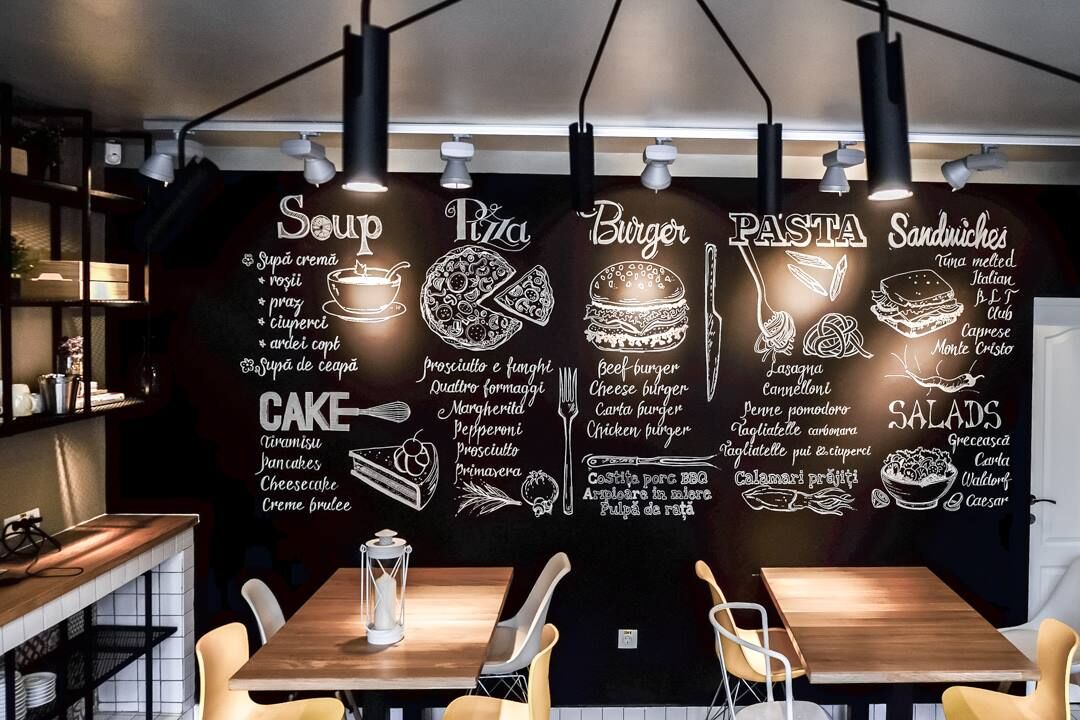 Soup
Supă cremă
* roșii
* praz
* ciuperci
* ardei copt
Supă de ceapă
CAKE
Tiramisu
Pancakes
Cheesecake
Creme brulee
Pizza
Prosciutto e funghi
Quattro formaggi
Margherita
Pepperoni
Prosciutto
Primavera
Burger
Beef burger
Cheese burger
Carta burger
Chicken burger
Costițe porc BBQ
Aripioare în miere
Pulpă de rață
PASTA
Lasagna
Cannelloni
Penne pomodoro
Tagliatelle carbonara
Tagliatelle pui & ciuperci
Calamari prăjiți
Sandwiches
Tuna melted
Italian
B L T
Club
Caprese
Monte Cristo
SALADS
Grecească
Carta
Waldorf
Caesar